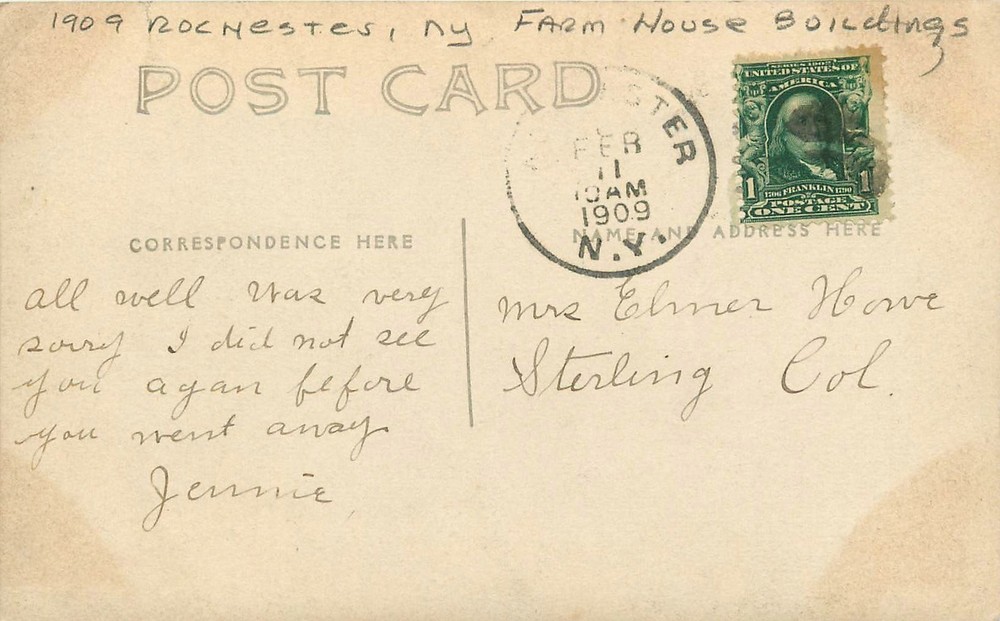 1909 Rochester, NY Farm House Buildings
POST CARD
SERIES 1902
UNITED STATES OF
AMERICA
1 1706 FRANKLIN 1790 1
POSTAGE
ONE CENT
STER
FEB
11
10AM
1909
N.Y.
CORRESPONDENCE HERE
NAME AND ADDRESS HERE
all well Was very
sorry I did not see
you agan before
you went away
Jennie
Mrs Elmer Howe
Sterling Col.